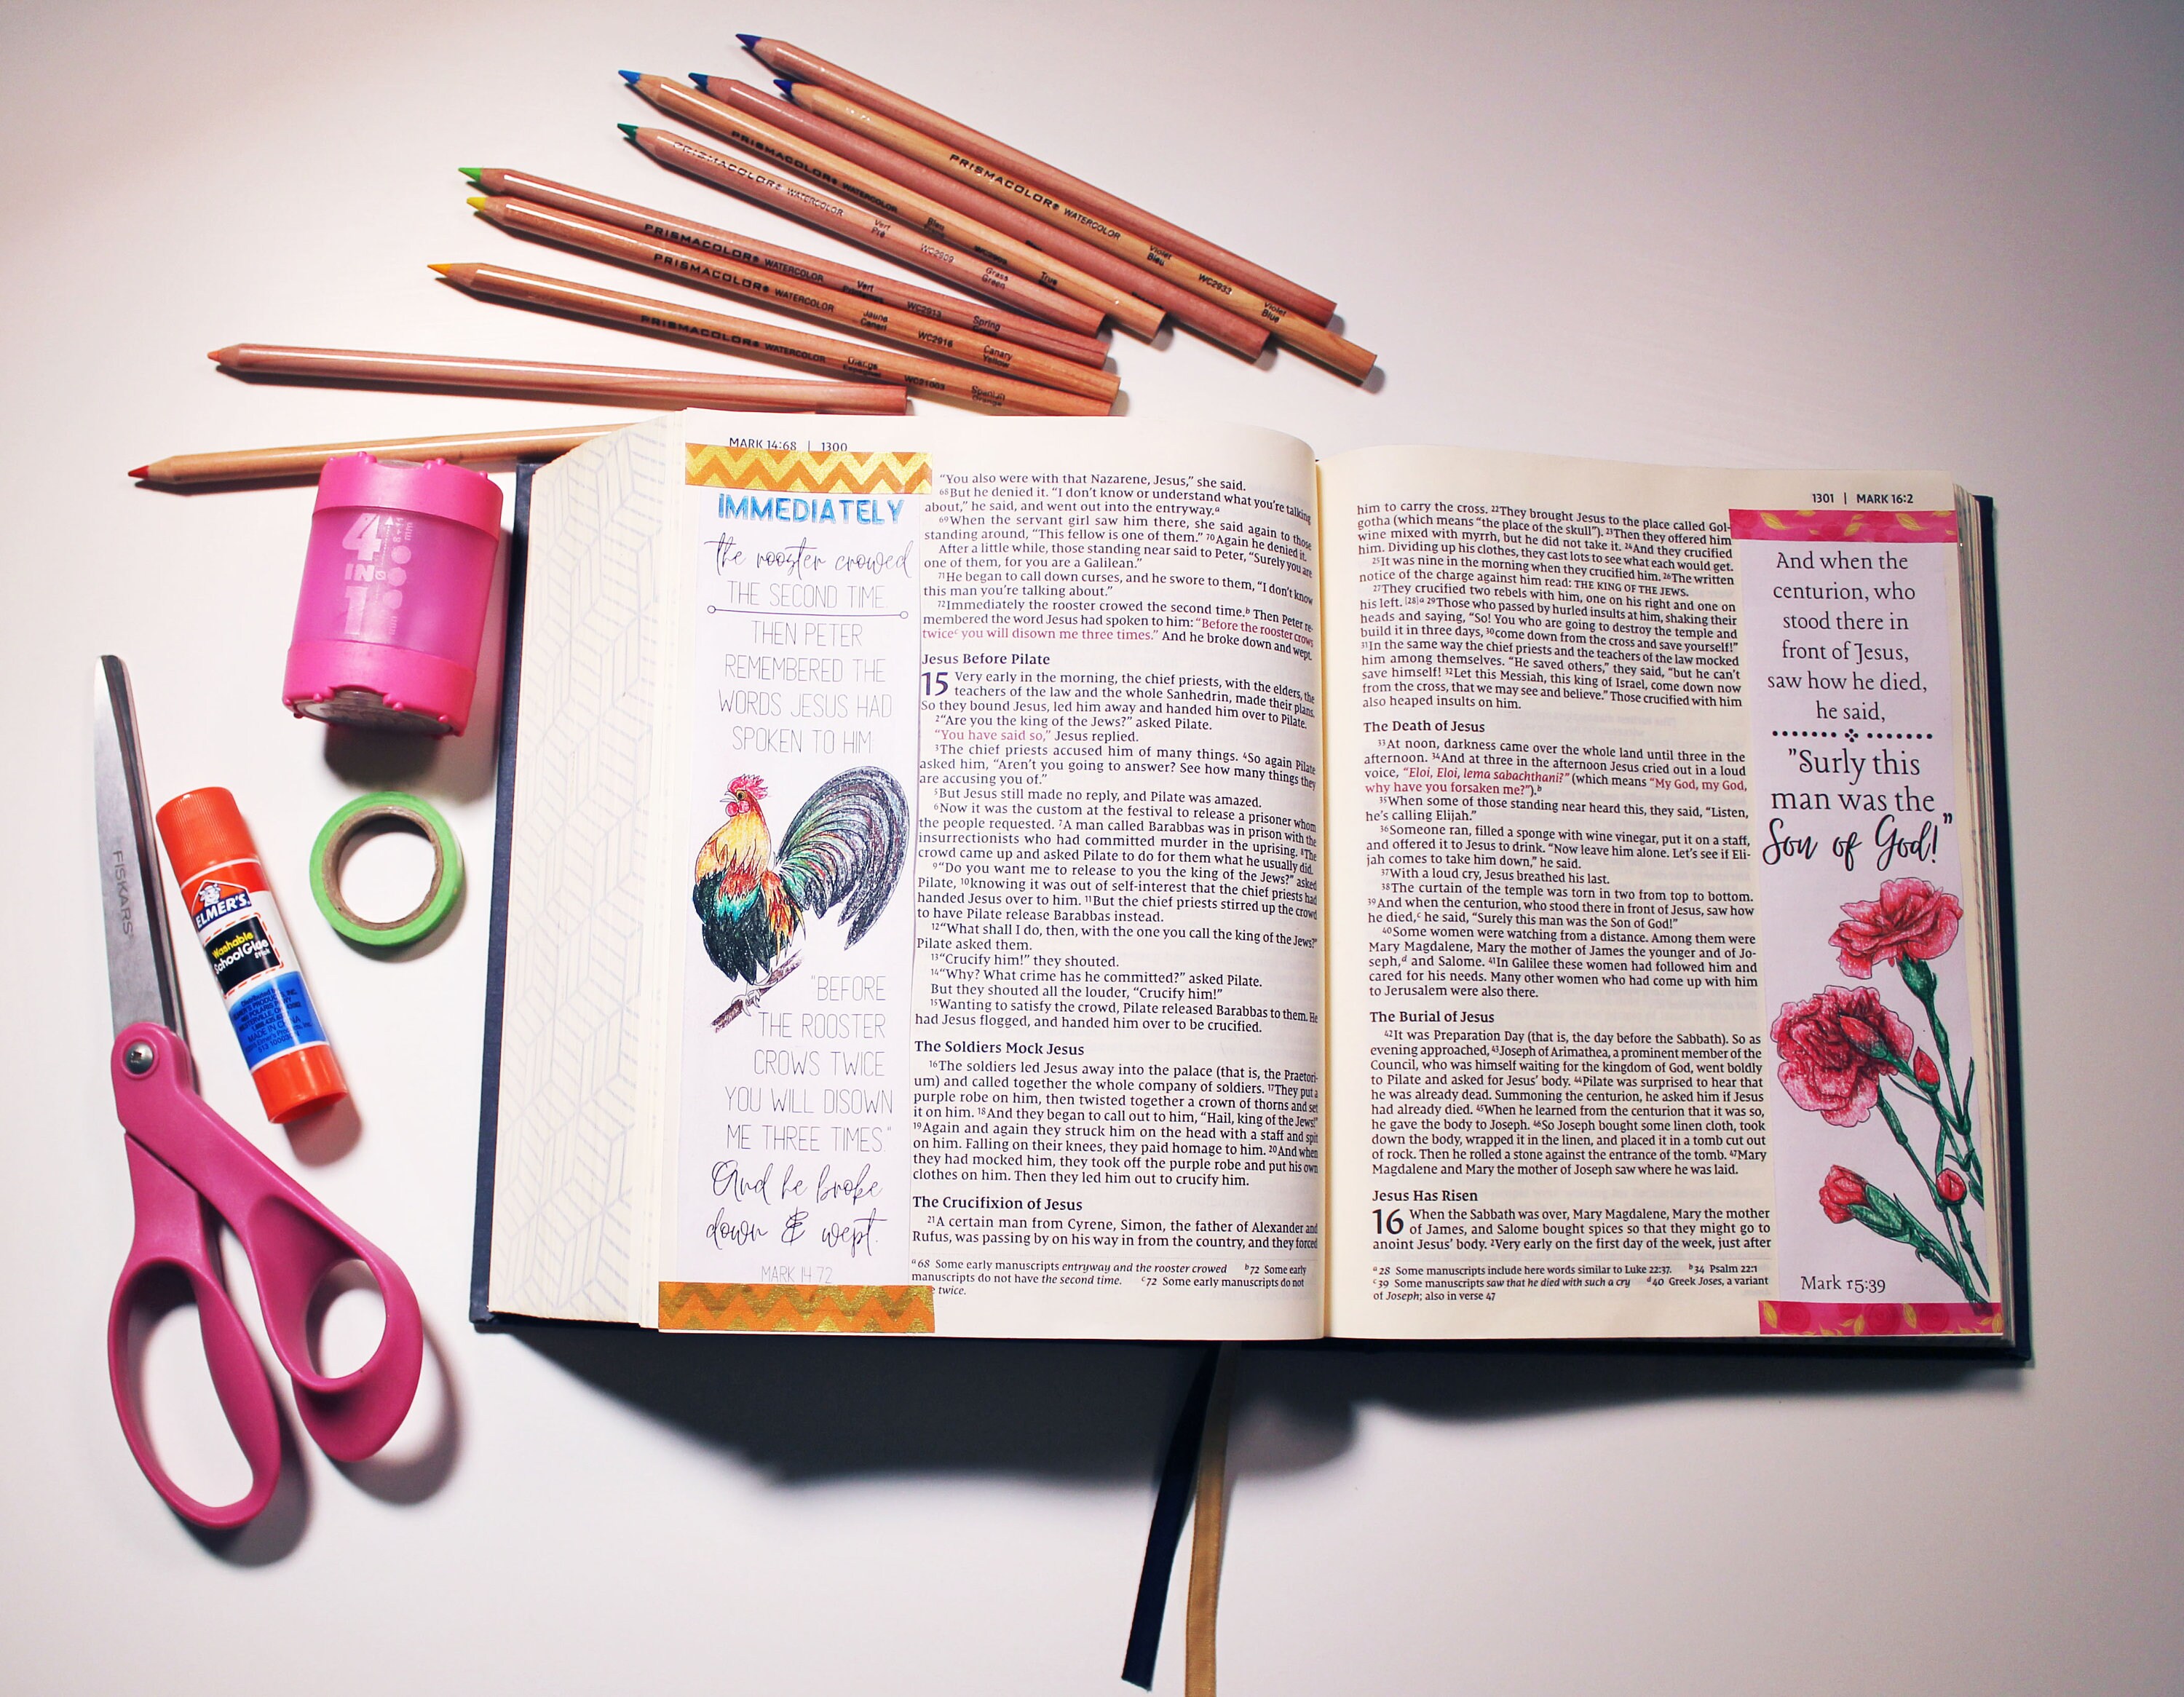 PRISMACOLOR® WATERCOLOR Violet Bleu WC2933 Violet Blue
PRISMACOLOR® WATERCOLOR Bleu True
PRISMACOLOR® WATERCOLOR Vert Pré WC2909 Grass Green
PRISMACOLOR® WATERCOLOR Vert Printemps WC2913 Spring Green
PRISMACOLOR® WATERCOLOR Jaune Canari WC2916 Canary Yellow
PRISMACOLOR® WATERCOLOR Orange WC21003 Spanish Orange
4
IN
1
FISKARS
ELMER'S
Washable
School Glue
STICK
MADE IN CHINA
MARK 14:68 | 1300
IMMEDIATELY
the rooster crowed
THE SECOND TIME
THEN PETER
REMEMBERED THE
WORDS JESUS HAD
SPOKEN TO HIM
"BEFORE
THE ROOSTER
CROWS TWICE
YOU WILL DISOWN
ME THREE TIMES"
And he broke
down & wept.
MARK 14:72
"You also were with that Nazarene, Jesus," she said.
68But he denied it. "I don't know or understand what you're talking
about," he said, and went out into the entryway.a
69When the servant girl saw him there, she said again to those
standing around, "This fellow is one of them." 70Again he denied it.
After a little while, those standing near said to Peter, "Surely you are
one of them, for you are a Galilean."
71He began to call down curses, and he swore to them, "I don't know
this man you're talking about."
72Immediately the rooster crowed the second time.b Then Peter re-
membered the word Jesus had spoken to him: "Before the rooster crows
twicec you will disown me three times." And he broke down and wept.
Jesus Before Pilate
15 Very early in the morning, the chief priests, with the elders, the
teachers of the law and the whole Sanhedrin, made their plans.
So they bound Jesus, led him away and handed him over to Pilate.
2"Are you the king of the Jews?" asked Pilate.
"You have said so," Jesus replied.
3The chief priests accused him of many things. 4So again Pilate
asked him, "Aren't you going to answer? See how many things they
are accusing you of."
5But Jesus still made no reply, and Pilate was amazed.
6Now it was the custom at the festival to release a prisoner whom
the people requested. 7A man called Barabbas was in prison with the
insurrectionists who had committed murder in the uprising. 8The
crowd came up and asked Pilate to do for them what he usually did.
9"Do you want me to release to you the king of the Jews?" asked
Pilate, 10knowing it was out of self-interest that the chief priests had
handed Jesus over to him. 11But the chief priests stirred up the crowd
to have Pilate release Barabbas instead.
12"What shall I do, then, with the one you call the king of the Jews?"
Pilate asked them.
13"Crucify him!" they shouted.
14"Why? What crime has he committed?" asked Pilate.
But they shouted all the louder, "Crucify him!"
15Wanting to satisfy the crowd, Pilate released Barabbas to them. He
had Jesus flogged, and handed him over to be crucified.
The Soldiers Mock Jesus
16The soldiers led Jesus away into the palace (that is, the Praetori-
um) and called together the whole company of soldiers. 17They put a
purple robe on him, then twisted together a crown of thorns and set
it on him. 18And they began to call out to him, "Hail, king of the Jews!"
19Again and again they struck him on the head with a staff and spit
on him. Falling on their knees, they paid homage to him. 20And when
they had mocked him, they took off the purple robe and put his own
clothes on him. Then they led him out to crucify him.
The Crucifixion of Jesus
21A certain man from Cyrene, Simon, the father of Alexander and
Rufus, was passing by on his way in from the country, and they forced
a68 Some early manuscripts entryway and the rooster crowed b72 Some early
manuscripts do not have the second time. c72 Some early manuscripts do not
twice.
1301 | MARK 16:2
him to carry the cross. 22They brought Jesus to the place called Gol-
gotha (which means "the place of the skull"). 23Then they offered him
wine mixed with myrrh, but he did not take it. 24And they crucified
him. Dividing up his clothes, they cast lots to see what each would get.
25It was nine in the morning when they crucified him. 26The written
notice of the charge against him read: THE KING OF THE JEWS.
27They crucified two rebels with him, one on his right and one on
his left. [28]a 29Those who passed by hurled insults at him, shaking their
heads and saying, "So! You who are going to destroy the temple and
build it in three days, 30come down from the cross and save yourself!"
31In the same way the chief priests and the teachers of the law mocked
him among themselves. "He saved others," they said, "but he can't
save himself! 32Let this Messiah, this king of Israel, come down now
from the cross, that we may see and believe." Those crucified with him
also heaped insults on him.
The Death of Jesus
33At noon, darkness came over the whole land until three in the
afternoon. 34And at three in the afternoon Jesus cried out in a loud
voice, "Eloi, Eloi, lema sabachthani?" (which means "My God, my God,
why have you forsaken me?").b
35When some of those standing near heard this, they said, "Listen,
he's calling Elijah."
36Someone ran, filled a sponge with wine vinegar, put it on a staff,
and offered it to Jesus to drink. "Now leave him alone. Let's see if Eli-
jah comes to take him down," he said.
37With a loud cry, Jesus breathed his last.
38The curtain of the temple was torn in two from top to bottom.
39And when the centurion, who stood there in front of Jesus, saw how
he died,c he said, "Surely this man was the Son of God!"
40Some women were watching from a distance. Among them were
Mary Magdalene, Mary the mother of James the younger and of Jo-
seph,d and Salome. 41In Galilee these women had followed him and
cared for his needs. Many other women who had come up with him
to Jerusalem were also there.
The Burial of Jesus
42It was Preparation Day (that is, the day before the Sabbath). So as
evening approached, 43Joseph of Arimathea, a prominent member of the
Council, who was himself waiting for the kingdom of God, went boldly
to Pilate and asked for Jesus' body. 44Pilate was surprised to hear that
he was already dead. Summoning the centurion, he asked him if Jesus
had already died. 45When he learned from the centurion that it was so,
he gave the body to Joseph. 46So Joseph bought some linen cloth, took
down the body, wrapped it in the linen, and placed it in a tomb cut out
of rock. Then he rolled a stone against the entrance of the tomb. 47Mary
Magdalene and Mary the mother of Joseph saw where he was laid.
Jesus Has Risen
16 When the Sabbath was over, Mary Magdalene, Mary the mother
of James, and Salome bought spices so that they might go to
anoint Jesus' body. 2Very early on the first day of the week, just after
a28 Some manuscripts include here words similar to Luke 22:37. b34 Psalm 22:1
c39 Some manuscripts saw that he died with such a cry d40 Greek Joses, a variant
of Joseph; also in verse 47
And when the
centurion, who
stood there in
front of Jesus,
saw how he died,
he said,
"Surly this
man was the
Son of God!"
Mark 15:39